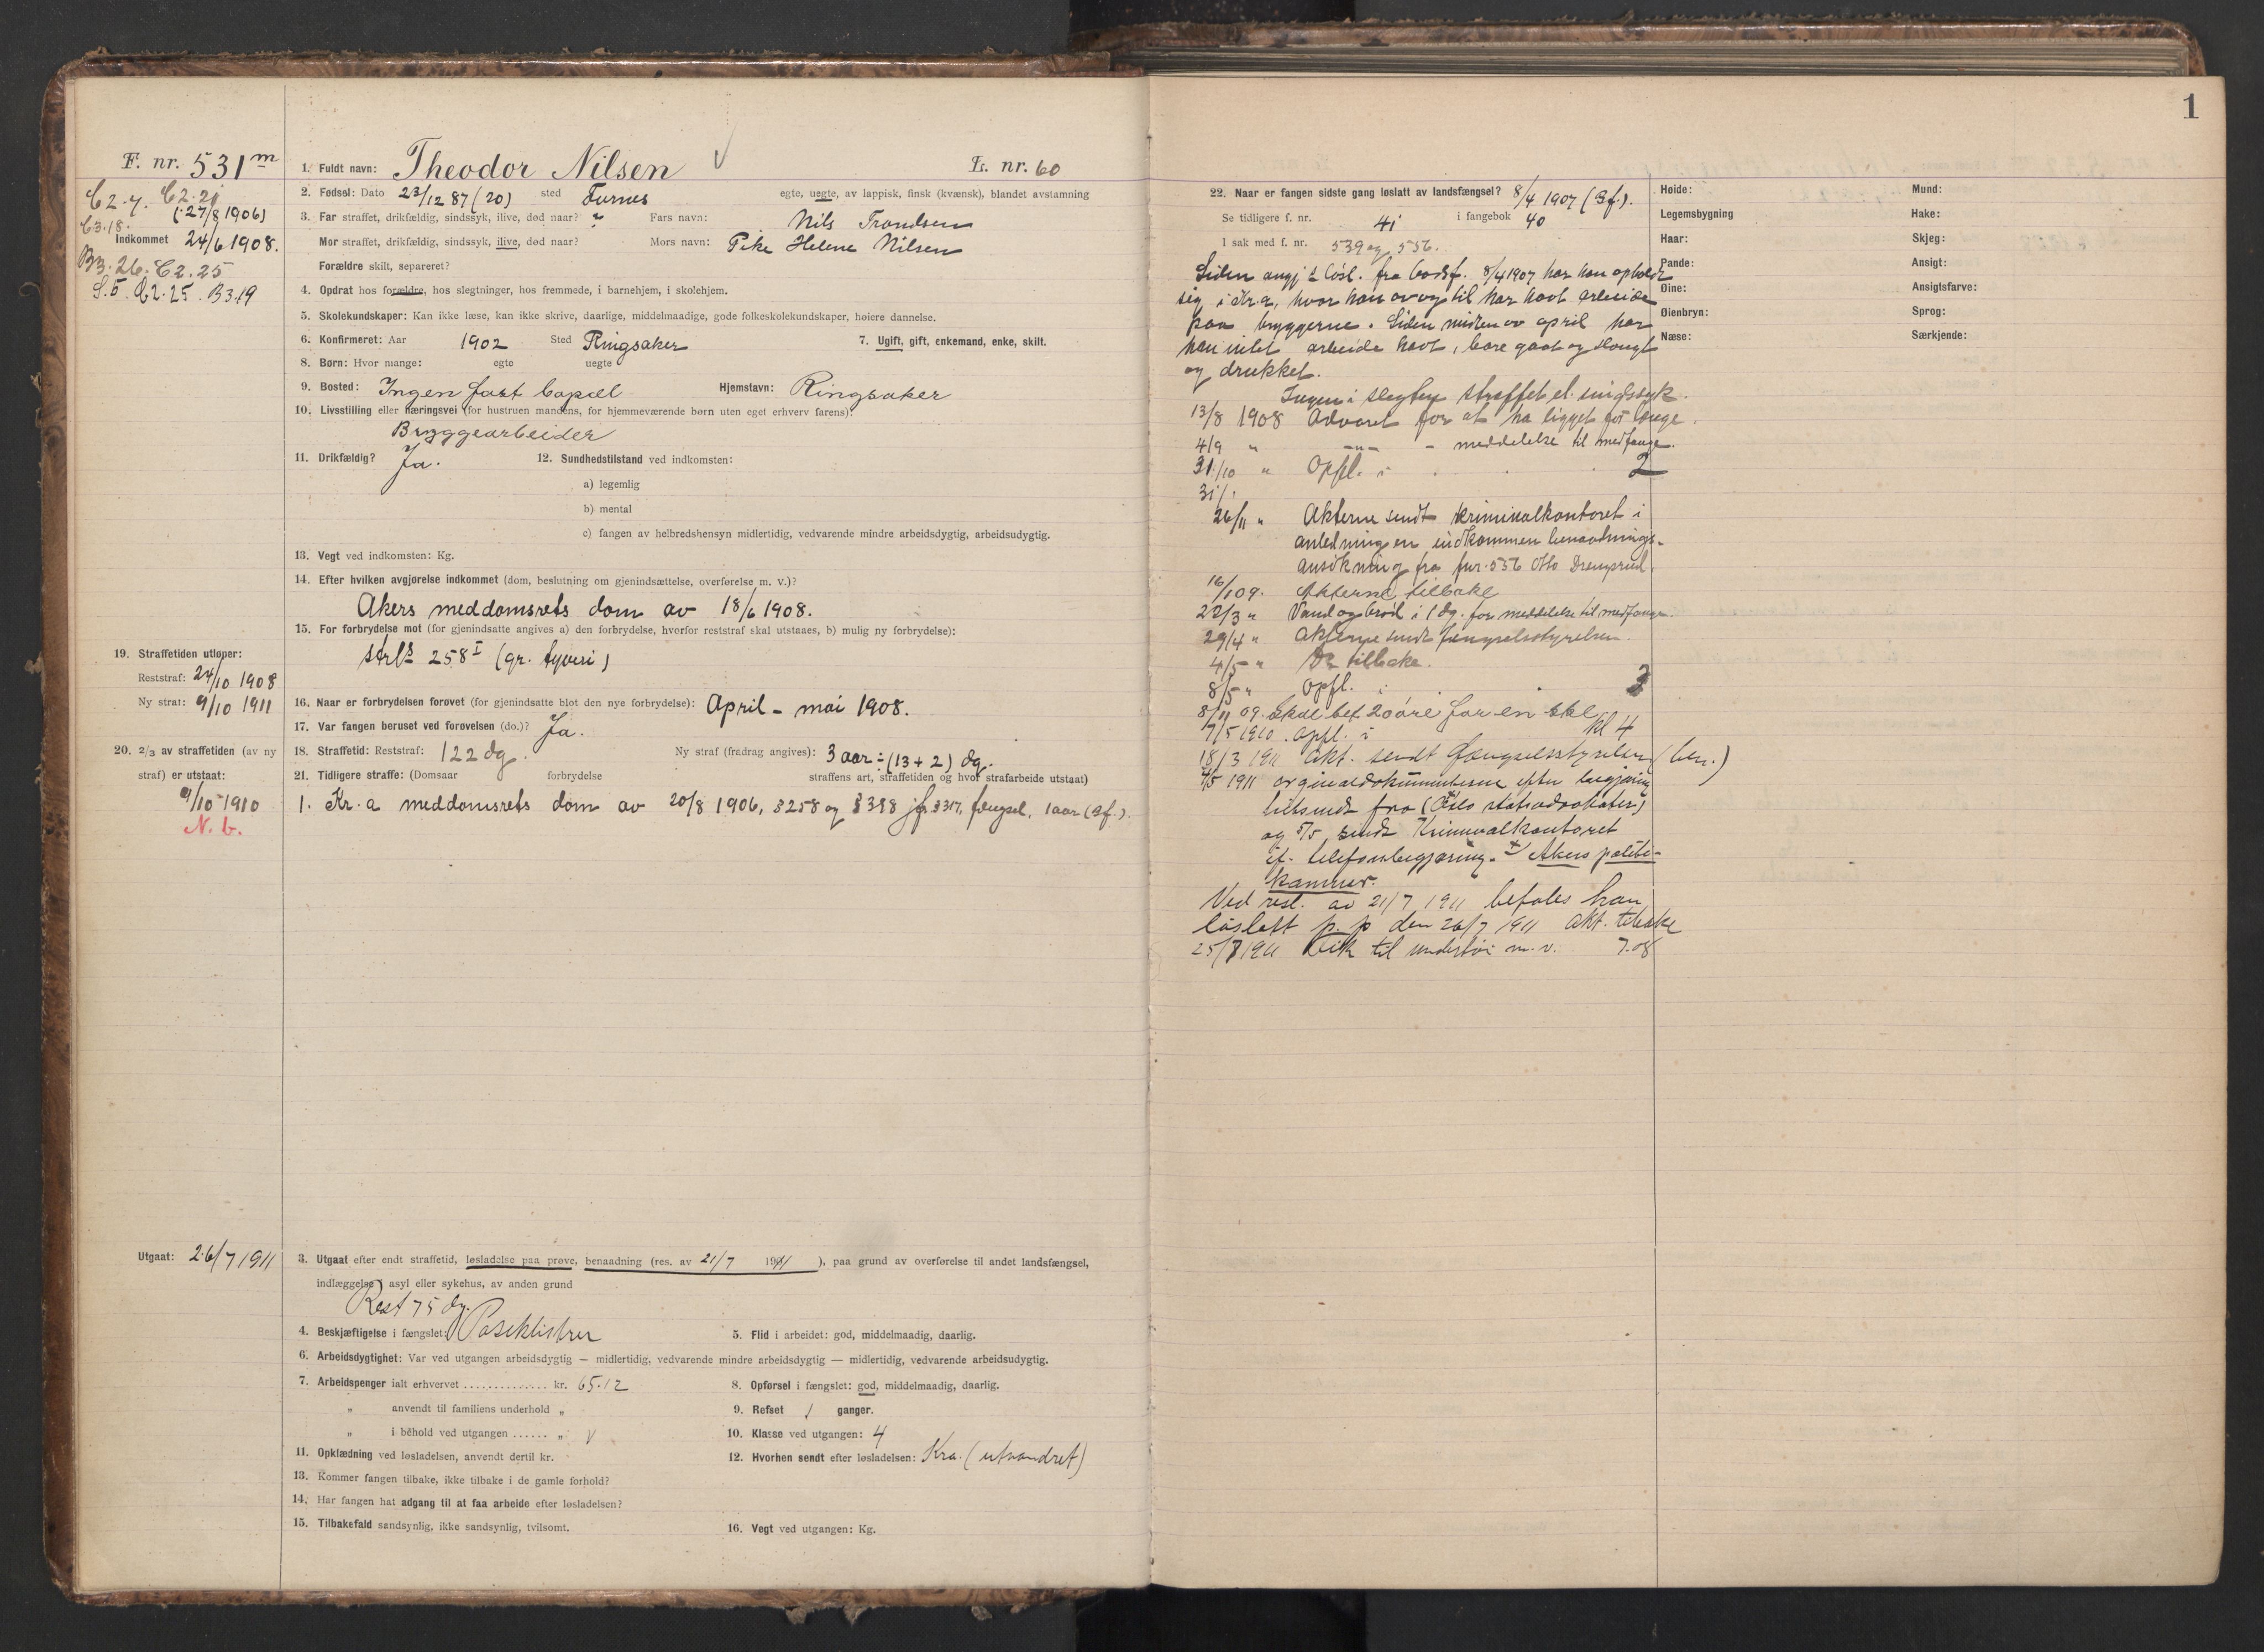 F. nr. 531 m
C2.7. C2.21
(27/8 1906)
C3.18.
Indkommet 24/6 1908.
B3.26. C2.25
S.5. C2.25. B3.19
19. Straffetiden utløper:
Reststraf: 24/10 1908
Ny straf: 9/10 1911
20. 2/3 av straffetiden (av ny
straf) er utstaat:
9/10 1910
N. b.
Utgaat: 26/7 1911
1. Fuldt navn: Theodor Nilsen L. nr. 60
2. Fødsel: Dato 23/12 87 (20) sted Furnes egte, uegte, av lappisk, finsk (kvænsk), blandet avstamning
3. Far straffet, drikfældig, sindssyk, ilive, død naar? ? Fars navn: Nils Trondsen
Mor straffet, drikfældig, sindssyk, ilive, død naar? Mors navn: Helene Nilsen
Forældre skilt, separeret?
4. Opdrat hos forældre, hos slegtninger, hos fremmede, i barnehjem, i skolehjem.
5. Skolekundskaper: Kan ikke læse, kan ikke skrive, daarlige, middelmaadige, gode folkeskolekundskaper, høiere dannelse.
6. Konfirmeret: Aar 1902 Sted Ringsaker 7. Ugift, gift, enkemand, enke, skilt.
8. Børn: Hvor mange: egte uegte
9. Bosted: Ingen fast bopæl Hjemstavn: Ringsaker
10. Livsstilling eller næringsvei (for hustruen mandens, for hjemmeværende børn uten eget erhverv farens):
Bryggearbeider
11. Drikfældig? Ja. 12. Sundhedstilstand ved indkomsten:
a) legemlig
b) mental
c) fangen av helbredshensyn midlertidig, vedvarende mindre arbeidsdygtig, arbeidsudygtig.
13. Vegt ved indkomsten: Kg.
14. Efter hvilken avgjørelse indkommet (dom, beslutning om gjenindsættelse, overførelse m. v.)?
Akers meddomsrets dom av 18/6 1908.
15. For forbrydelse mot (for gjenindsatte angives a) den forbrydelse, hvorfor reststraf skal utstaaes, b) mulig ny forbrydelse):
strl's 258 I (gr. tyveri)
16. Naar er forbrydelsen forøvet (for gjenindsatte blot den nye forbrydelse): April - mai 1908.
17. Var fangen beruset ved forøvelsen (do.)? Ja.
18. Straffetid: Reststraf: 122 dg. Ny straf (fradrag angives): 3 aar ÷ (13 + 2) dg.
21. Tidligere straffe: (Domsaar forbrydelse straffens art, straffetiden og hvor strafarbeide utstaat)
1. Kr.a meddomsrets dom av 20/8 1906, § 258 og § 398 jfr. § 317, fængsel, 1 aar (Bf.).
3. Utgaat efter endt straffetid, løsladelse paa prøve, benaadning (res. av 21/7 1911 ), paa grund av overførelse til andet landsfængsel,
indlæggelse i asyl eller sykehus, av anden grund
Rest 75 dg.
4. Beskjæftigelse i fængslet: Poseklistrer 5. Flid i arbeidet: god, middelmaadig, daarlig.
6. Arbeidsdygtighet: Var ved utgangen arbeidsdygtig — midlertidig, vedvarende mindre arbeidsdygtig — midlertidig, vedvarende arbeidsudygtig.
7. Arbeidspenger ialt erhvervet .............. kr. 65.12 8. Opførsel i fængslet: god, middelmaadig, daarlig.
" anvendt til familiens underhold " 9. Refset 1 ganger.
" i behold ved utgangen ...... " 10. Klasse ved utgangen: 4
11. Opklædning ved løsladelsen, anvendt dertil kr. 12. Hvorhen sendt efter løsladelsen: Kra. (utvandret)
13. Kommer fangen tilbake, ikke tilbake i de gamle forhold?
14. Har fangen hat adgang til at faa arbeide efter løsladelsen?
15. Tilbakefald sandsynlig, ikke sandsynlig, tvilsomt. 16. Vegt ved utgangen: Kg.
1
22. Naar er fangen sidste gang løslatt av landsfængsel? 8/4 1907 (Bf.).
Se tidligere f. nr. 41 i fangebok 40
I sak med f. nr. 539 og 556.
Siden løsl. fra bodsf. 8/4 1907 har han opholdt
sig i Kr.a, hvor han av og til har havt arbeide
paa bryggerne. Siden midten av april har
han intet arbeide havt, bare gaat og slængt
og drukket.
Ingen i slegten straffet el. sindssyk.
13/8 1908 Advaret for at ha ligget for længe.
4/9 " -"- - meddelelse til medfange.
31/10 " Opfl. i 2
31/1
26/11 " Akterne sendt kriminalkontoret i
anledning en indkommen benaadnings-
ansøkning fra fnr. 556 Otto
16/1 09. Akterne tilbake
22/3 " Vand og brød i 1 dg. for meddelelse til medfange.
29/4 " Akterne sendt fængselsstyrelsen.
4/5 " Do tilbake.
8/5 " Opfl. i 3
8/11 09. Skal bet 20 øre for en
7/5 1910. Opfl. i kl 4
18/3 1911 Akt. sendt fængselsstyrelsen (ben.)
4/5 1911 orginaldokumenterne efter begjæring
tilsendt fra (Oslo statsadvokater)
og 5/5 sendt Kriminalkontoret
ef. telefonbegjæring. x) Akers politi-
kammer.
Ved resl. av 21/7 1911 befales han
løslatt p. p den 26/7 1911 Akt. tilbake
25/7 1911 Fik til undertøi m. v. 7.08
Høide:
Legemsbygning
Haar:
Pande:
Øine:
Øienbryn:
Næse:
Mund:
Hake:
Skjeg:
Ansigt:
Ansigtsfarve:
Sprog:
Særkjende: